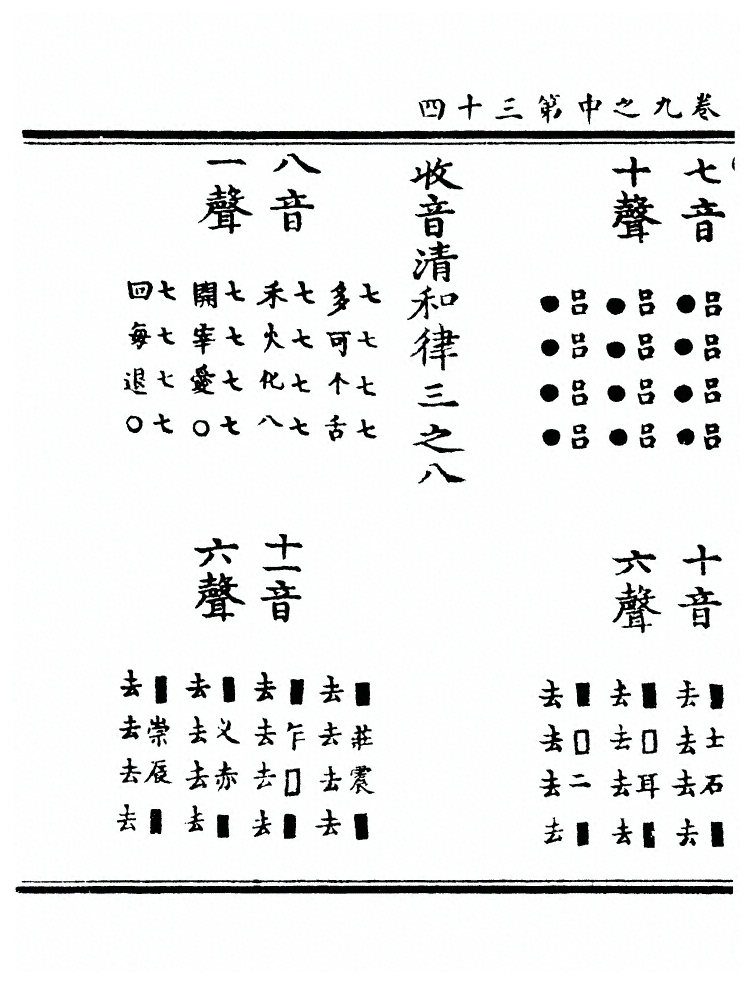 卷九之中第三十四
七音
十聲
吕吕吕吕
●●●●
吕吕吕吕
●●●●
吕吕吕吕
●●●●
十音
六聲
■士石■
去去去去
■□耳■
去去去去
■□二■
去去去去
收音清和律三之八
八音
一聲
七七七七
多可个舌
七七七七
禾火化八
七七七七
開宰愛○
七七七七
回每退○
十一音
六聲
■莊震■
去去去去
■乍□■
去去去去
■叉赤■
去去去去
■崇辰■
去去去去